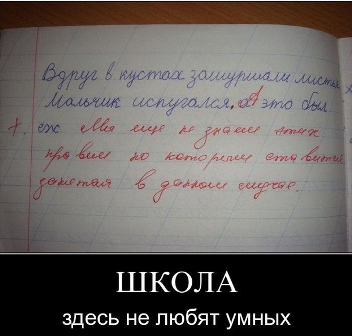 Вдруг в кустах зашуршали листья
Мальчик испугался. А это был
ёж Мы еще не знаем этих
правил по которым ставится
запятая в данном случае.
ШКОЛА
здесь не любят умных